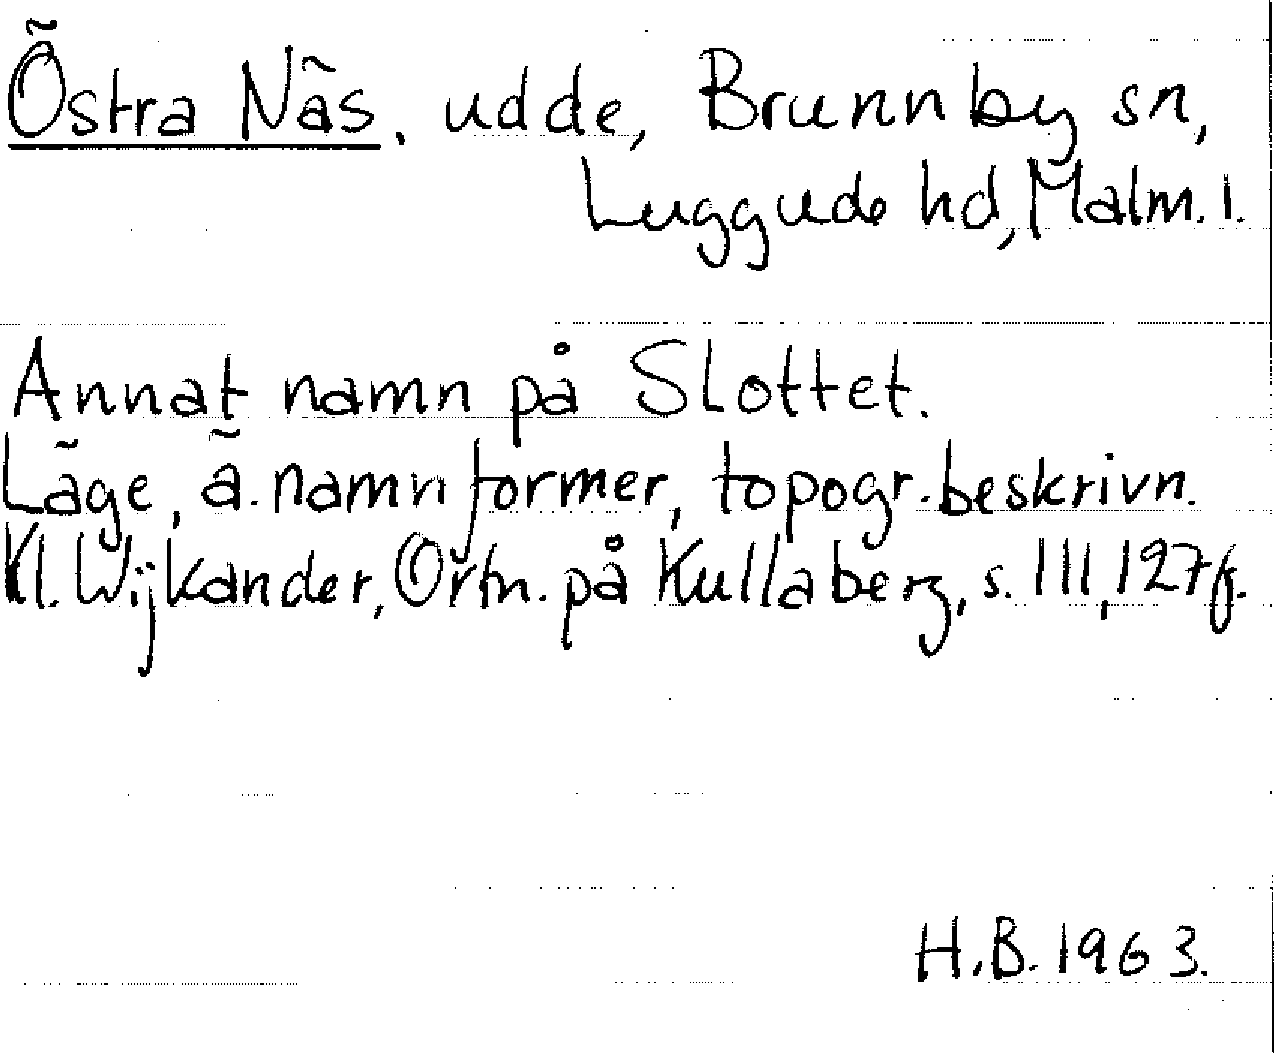 Östra Näs, udde, Brunnby sn,
Luggude hd, Malm. l.
Annat namn på Slottet.
Läge, ä. namnformer, topogr. beskrivn.
Kl. Wijkander, Ortn. på Kullaberg, s. 111, 127f.
H.B. 1963.